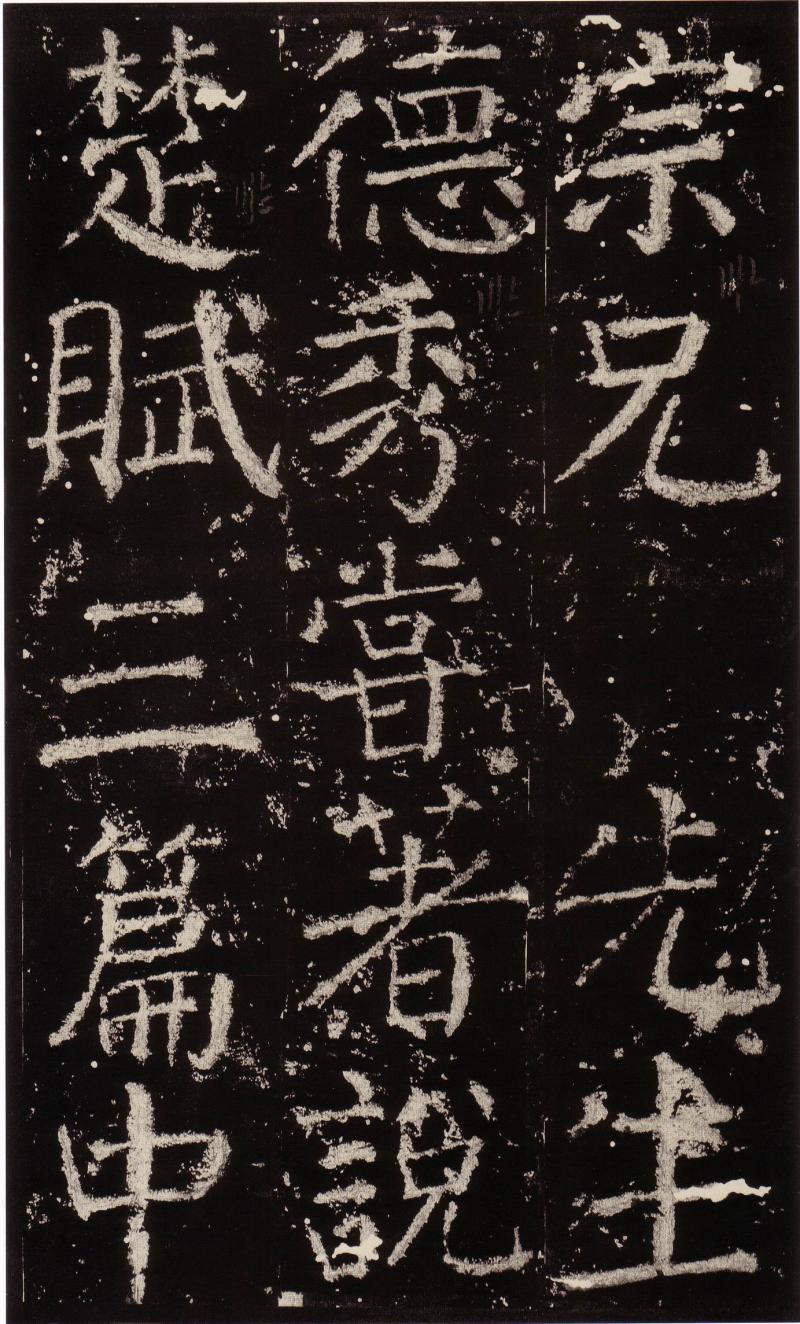 宗兄先生
德秀嘗著說
楚賦三篇中